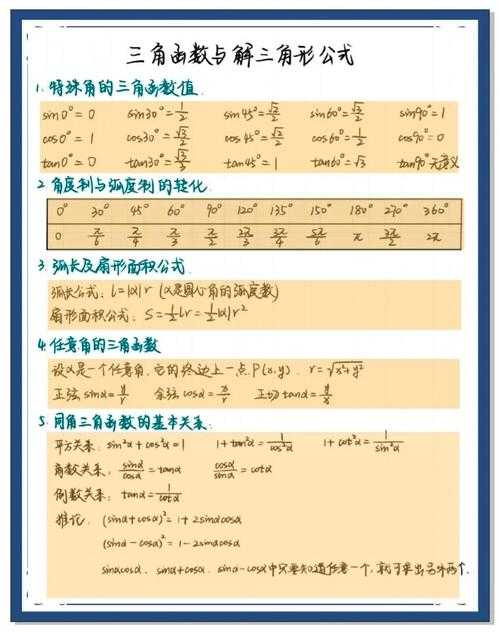 三角函数与解三角形公式
1. 特殊角的三角函数值.
sin0°=0 sin30°=1/2 sin45°=√2/2 sin60°=√3/2 sin90°=1
cos0°=1 cos30°=√3/2 cos45°=√2/2 cos60°=1/2 cos90°=0
tan0°=0 tan30°=√3/3 tan45°=1 tan60°=√3 tan90°无意义
2. 角度制与弧度制的转化.
0° 30° 45° 60° 90° 120° 135° 150° 180° 270° 360°
0 π/6 π/4 π/3 π/2 2π/3 3π/4 5π/6 π 3π/2 2π
3. 弧长及扇形面积公式.
弧长公式: l=|α|r (α是圆心角的弧度数)
扇形面积公式: S=1/2lr=1/2|α|r²
4. 任意角的三角函数
设α是一个任意角,它的终边上一点P(x,y). r=√x²+y²
正弦sinα=y/r 余弦cosα=x/r 正切tanα=y/x
5. 同角三角函数的基本关系:
平方关系: sin²α+cos²α=1 1+tan²α=1/cos²α 1+cot²α=1/sin²α
商数关系: sinα/cosα=tanα cosα/sinα=cotα
倒数关系: tanα=1/cotα
推论: (sinα+cosα)²=1+2sinαcosα
(sinα-cosα)²=1-2sinαcosα
sinαcosα、sinα+cosα、sinα-cosα中只要知道任意一个,就可求出另外两个.